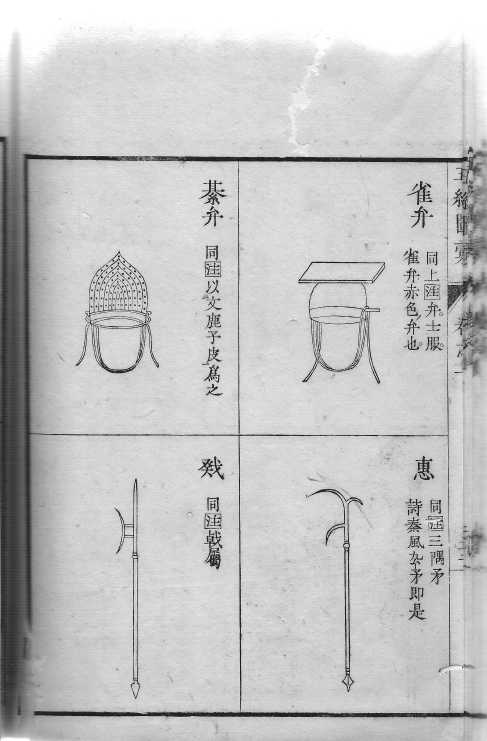 五經圖彙
雀弁
同上注弁士服
雀弁赤色弁也
綦弁
同注以文鹿子皮爲之
惠
同注三隅矛
詩秦風厹矛即是
戣
同注戟屬